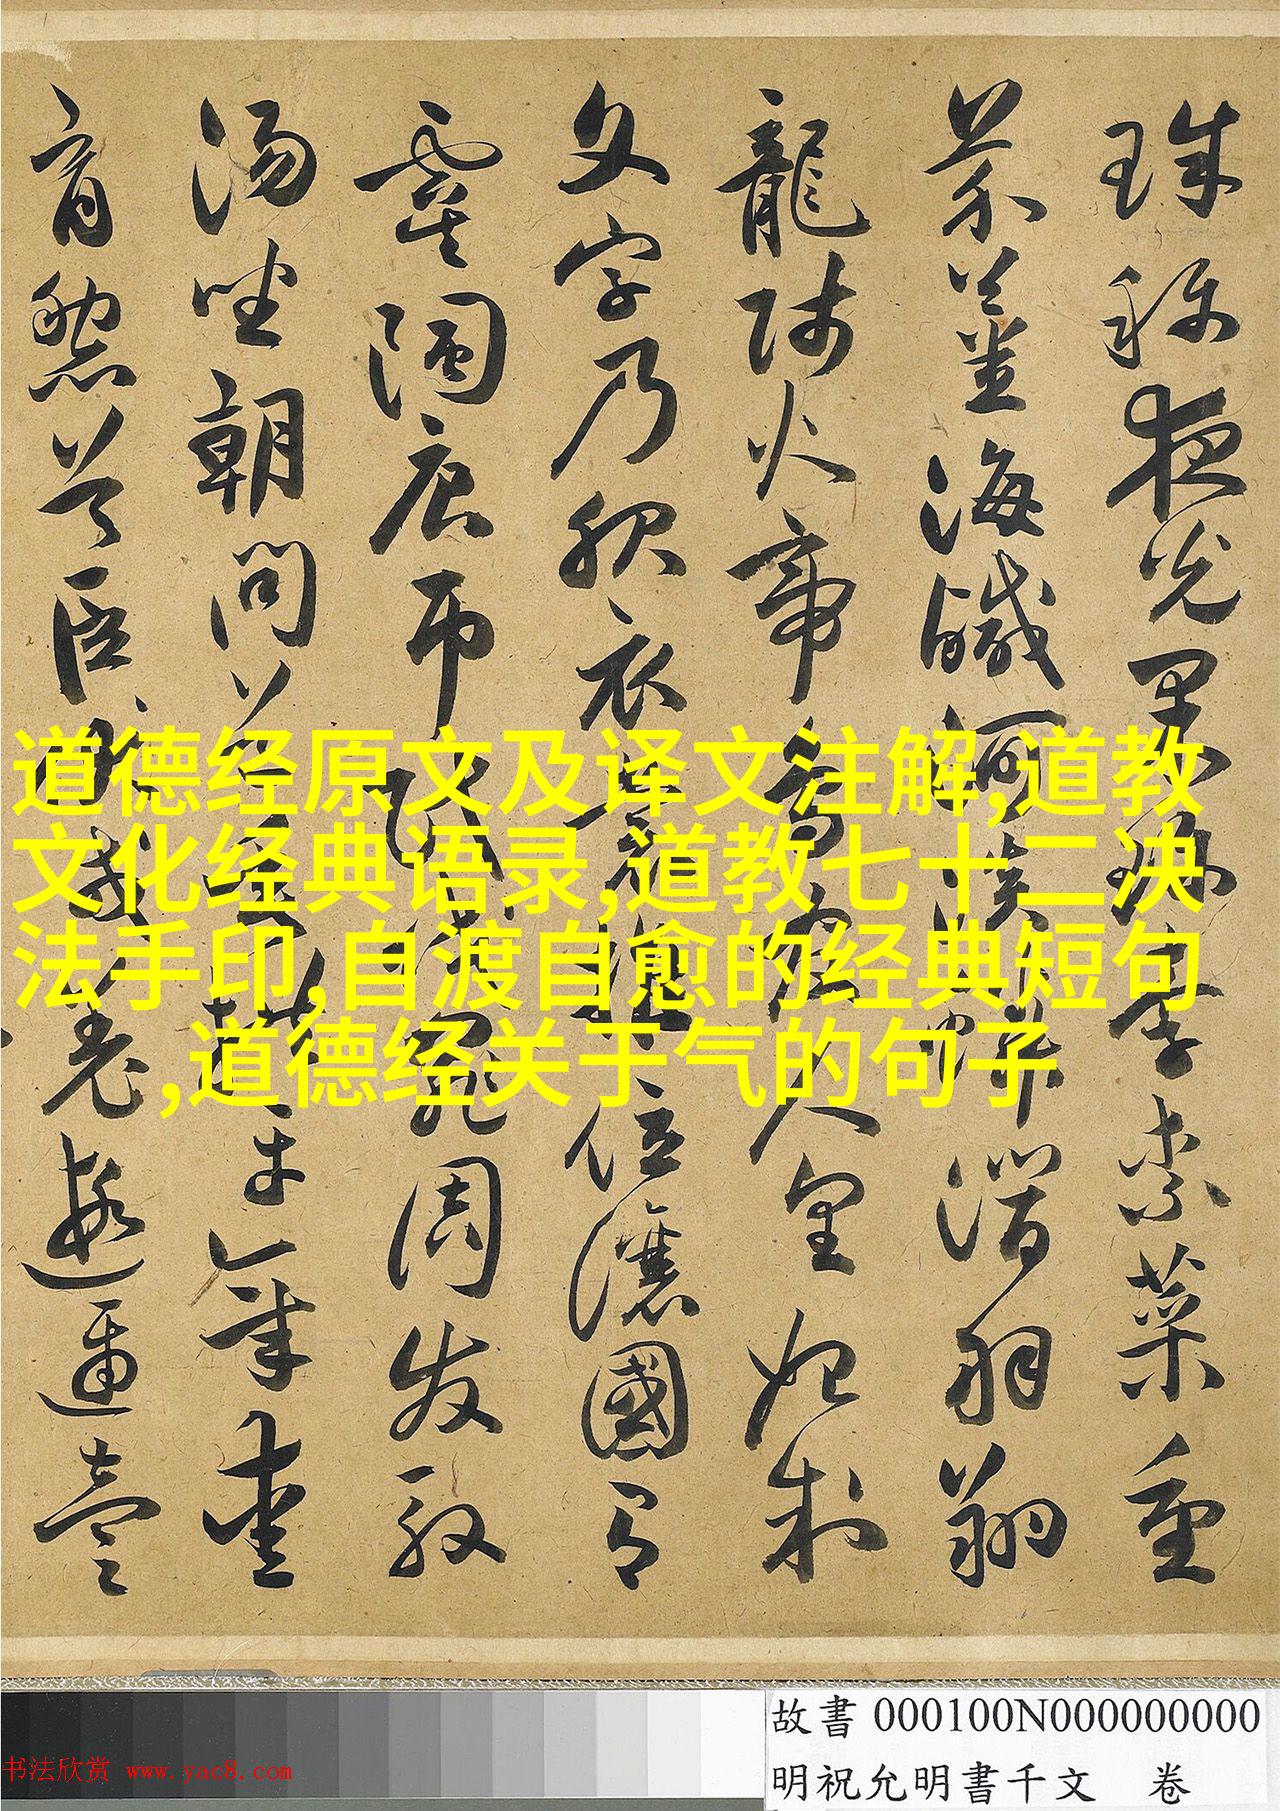 珠稱夜光果珍李柰菜重
芥薑海鹹河淡鱗潛羽翔
龍師火帝鳥官人皇始制
文字乃服衣裳推位讓國有
虞陶唐弔民伐罪周發殷
湯坐朝問道垂拱平章愛
育黎首臣伏戎羌遐邇壹
道德经原文及译文注解,道教
文化经典语录,道教七十二决
法手印,自渡自愈的经典短句
,道德经关于气的句子
故書 000100N000000000
明祝允明書千文 卷
书法欣赏 www.yac8.com